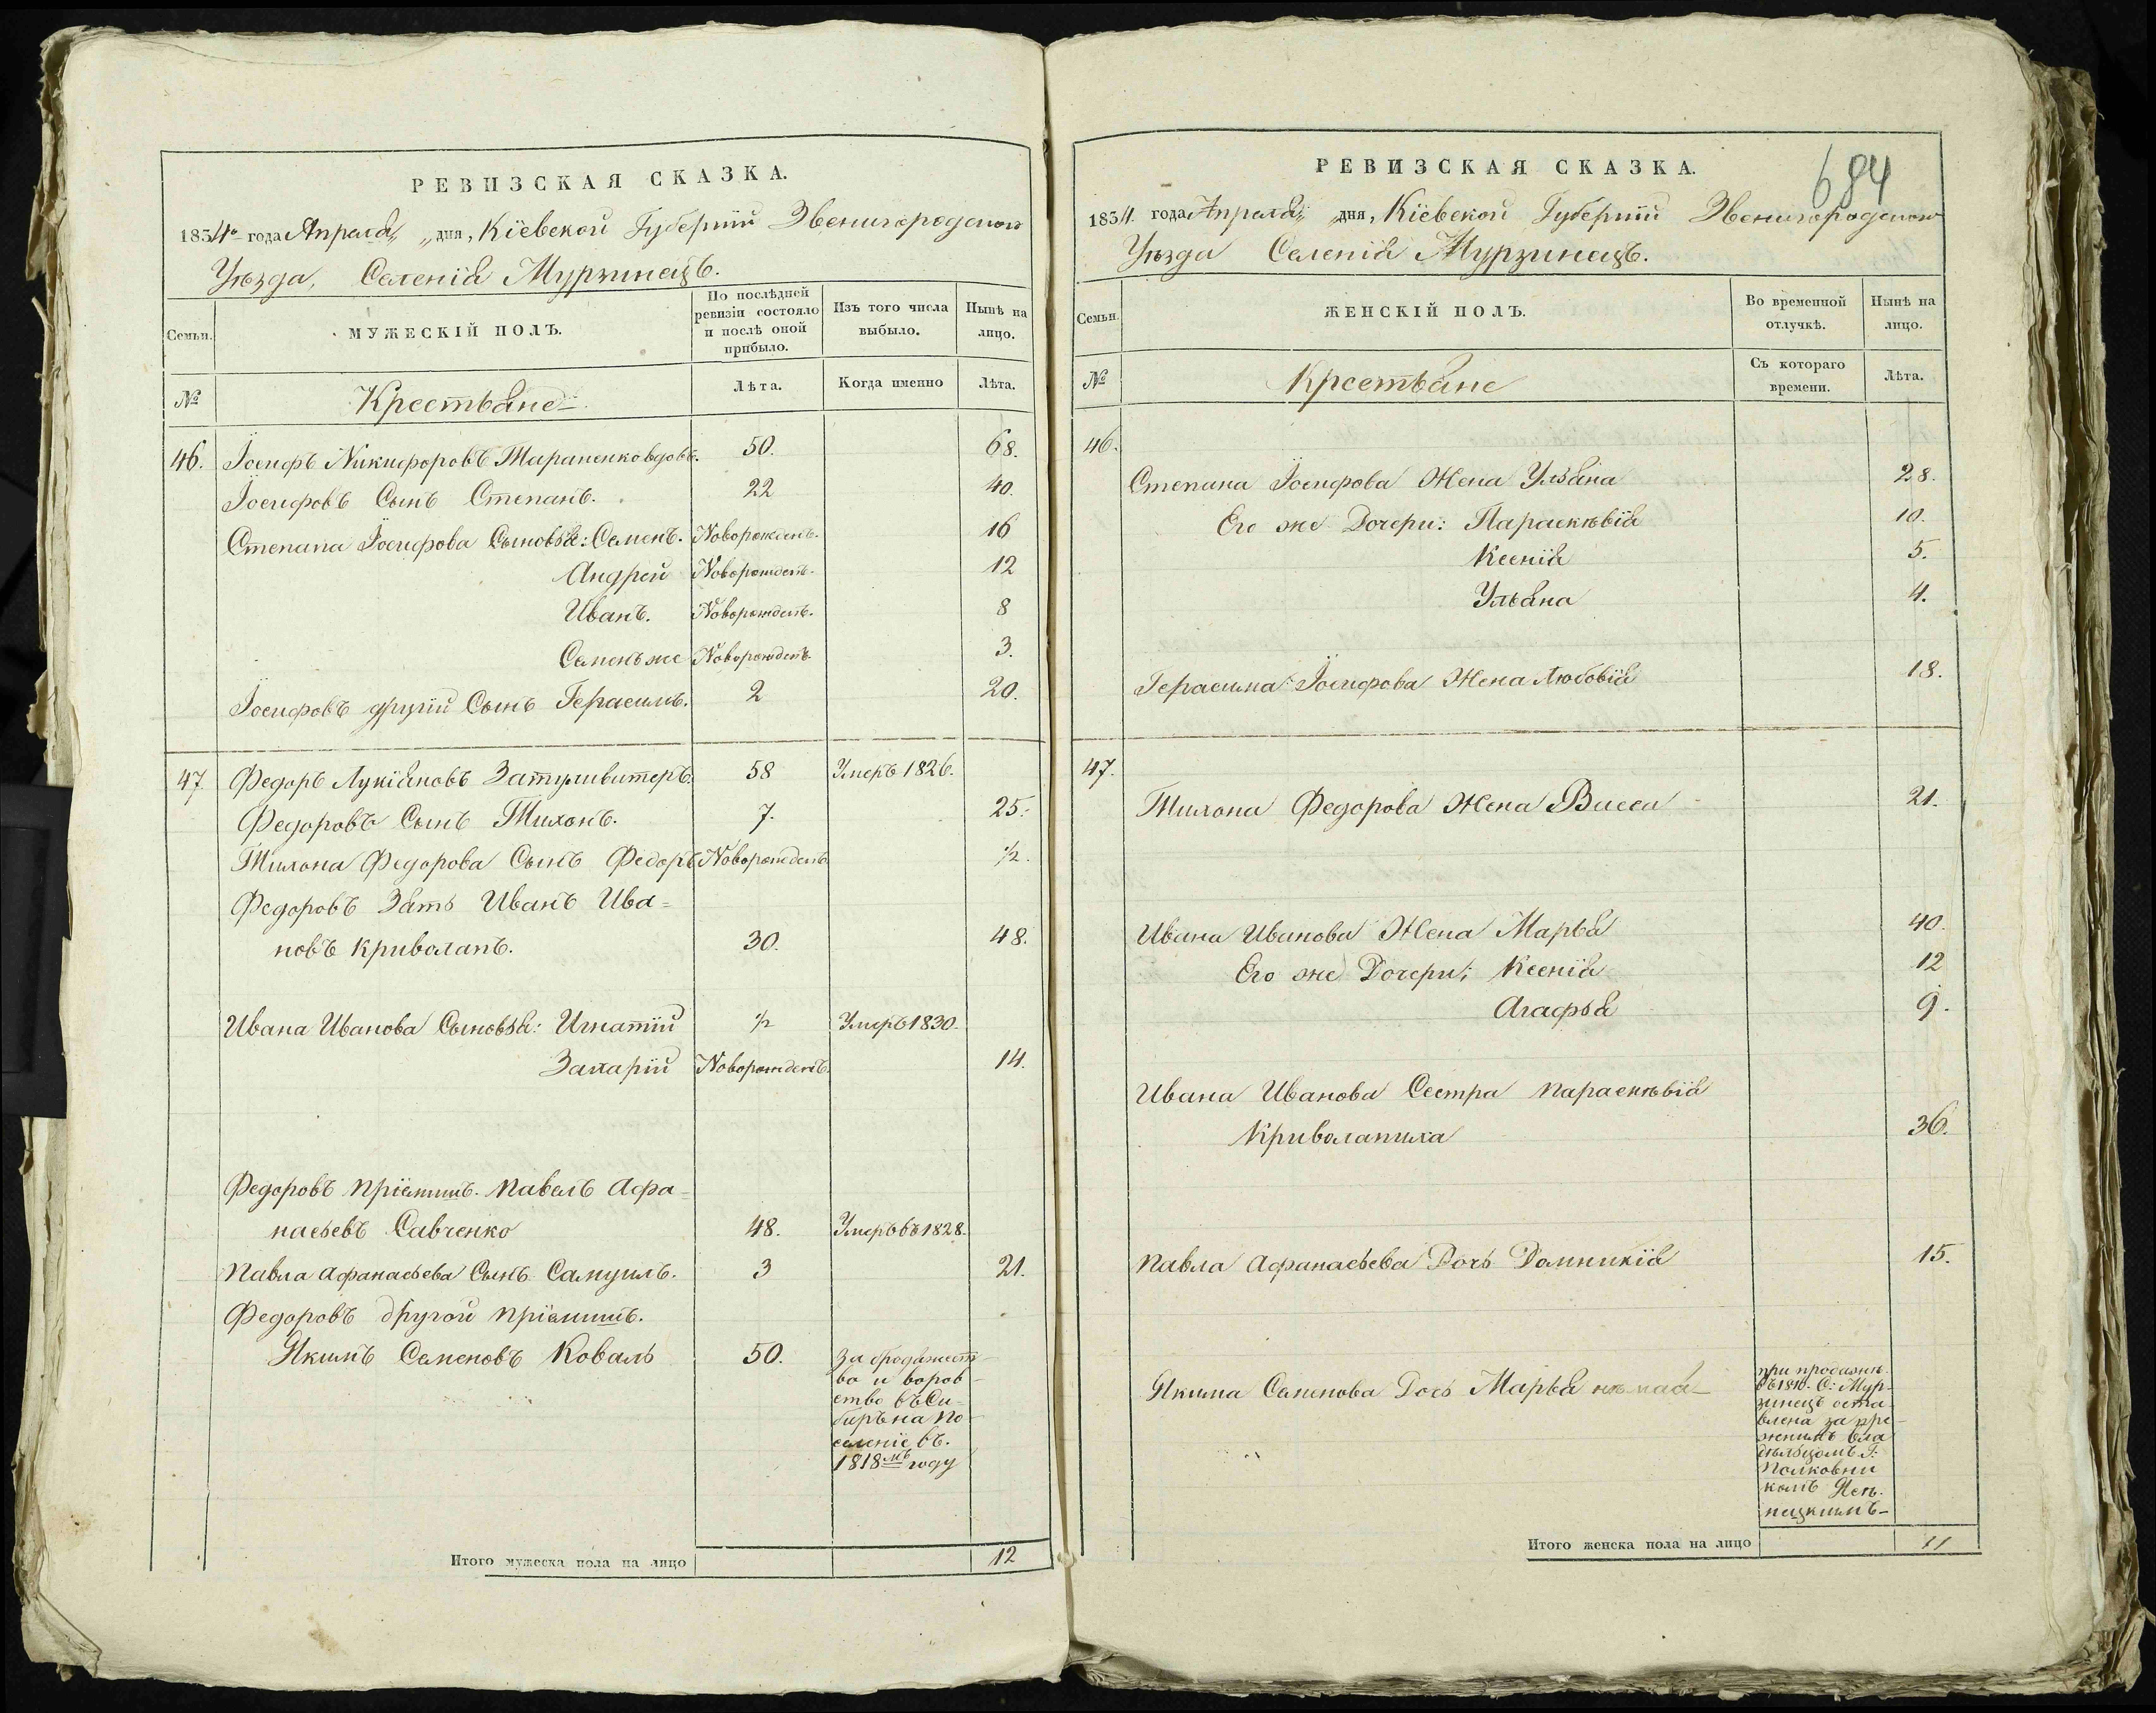 РЕВИЗСКАЯ СКАЗКА.
1834го года Апреля „ „ дня, Кіевской Губерніи Звенигородского
Уѣзда, Селенія Мурзинецъ.
Семьи.
МУЖЕСКІЙ ПОЛЪ.
По послѣдней ревизіи состояло и послѣ оной прибыло.
Изъ того числа выбыло.
Нынѣ на лицо.
№
Крестьяне
Лѣта.
Когда именно
Лѣта.
46. Іосифъ Никифоровъ Тараненко вдовъ. 50. 68.
Іосифовъ Сынъ Степанъ. 22 40.
Степана Іосифова Сыновья: Семенъ. Новорожденъ. 16
Андрей Новорожденъ. 12
Иванъ. Новорожденъ. 8
Семенъ же Новорожденъ. 3.
Іосифовъ другій Сынъ Герасимъ. 2 20.
47 Федоръ Лукіяновъ Затуливитеръ. 58 Умеръ 1826.
Федоровъ Сынъ Тихонъ. 7. 25.
Тихона Федорова Сынъ Федоръ Новорожденъ. ½.
Федоровъ Зять Иванъ Ива=
новъ Криволапъ. 30. 48.
Ивана Иванова Сыновья: Игнатій ½ Умеръ 1830.
Захарій Новорожденъ. 14.
Федоровъ пріемышъ. Павелъ Афа=
насьевъ Савченко 48. Умеръ въ 1828.
Павла Афанасьева Сынъ Самуилъ. 3 21.
Федоровъ другой пріемышъ.
Якимъ Семеновъ Коваль 50. За бродяжест-
во и воров-
ство въ Си-
бирь на по-
селеніе въ.
1818мъ году
Итого мужеска пола на лицо 12
684
РЕВИЗСКАЯ СКАЗКА.
1834. года Апреля „ дня, Кіевской Губерніи Звенигородского
Уѣзда Селенія Мурзинецъ.
Семьи.
ЖЕНСКІЙ ПОЛЪ.
Во временной отлучкѣ.
Нынѣ на лицо.
№
Крестьяне
Съ котораго времени.
Лѣта.
46.
Степана Іосифова Жена Ульяна 28.
Его же Дочери: Параскѣвія 10.
Ксенія 5.
Ульяна 4.
Герасима Іосифова Жена Любовія 18.
47.
Тихона Федорова Жена Васса 21.
Ивана Иванова Жена Марья 40.
Его же Дочери; Ксенія 12
Агафья 9.
Ивана Иванова Сестра Параскѣвія
Криволапиха 36.
Павла Афанасьева Дочь Домникія 15.
Якима Семенова Дочь Марья
при продажѣ.
С: Мур-
зинецъ оста-
влена за пре-
жнимъ вла
дѣльцомъ Г.
Полковни
комъ
Итого женска пола на лицо 11